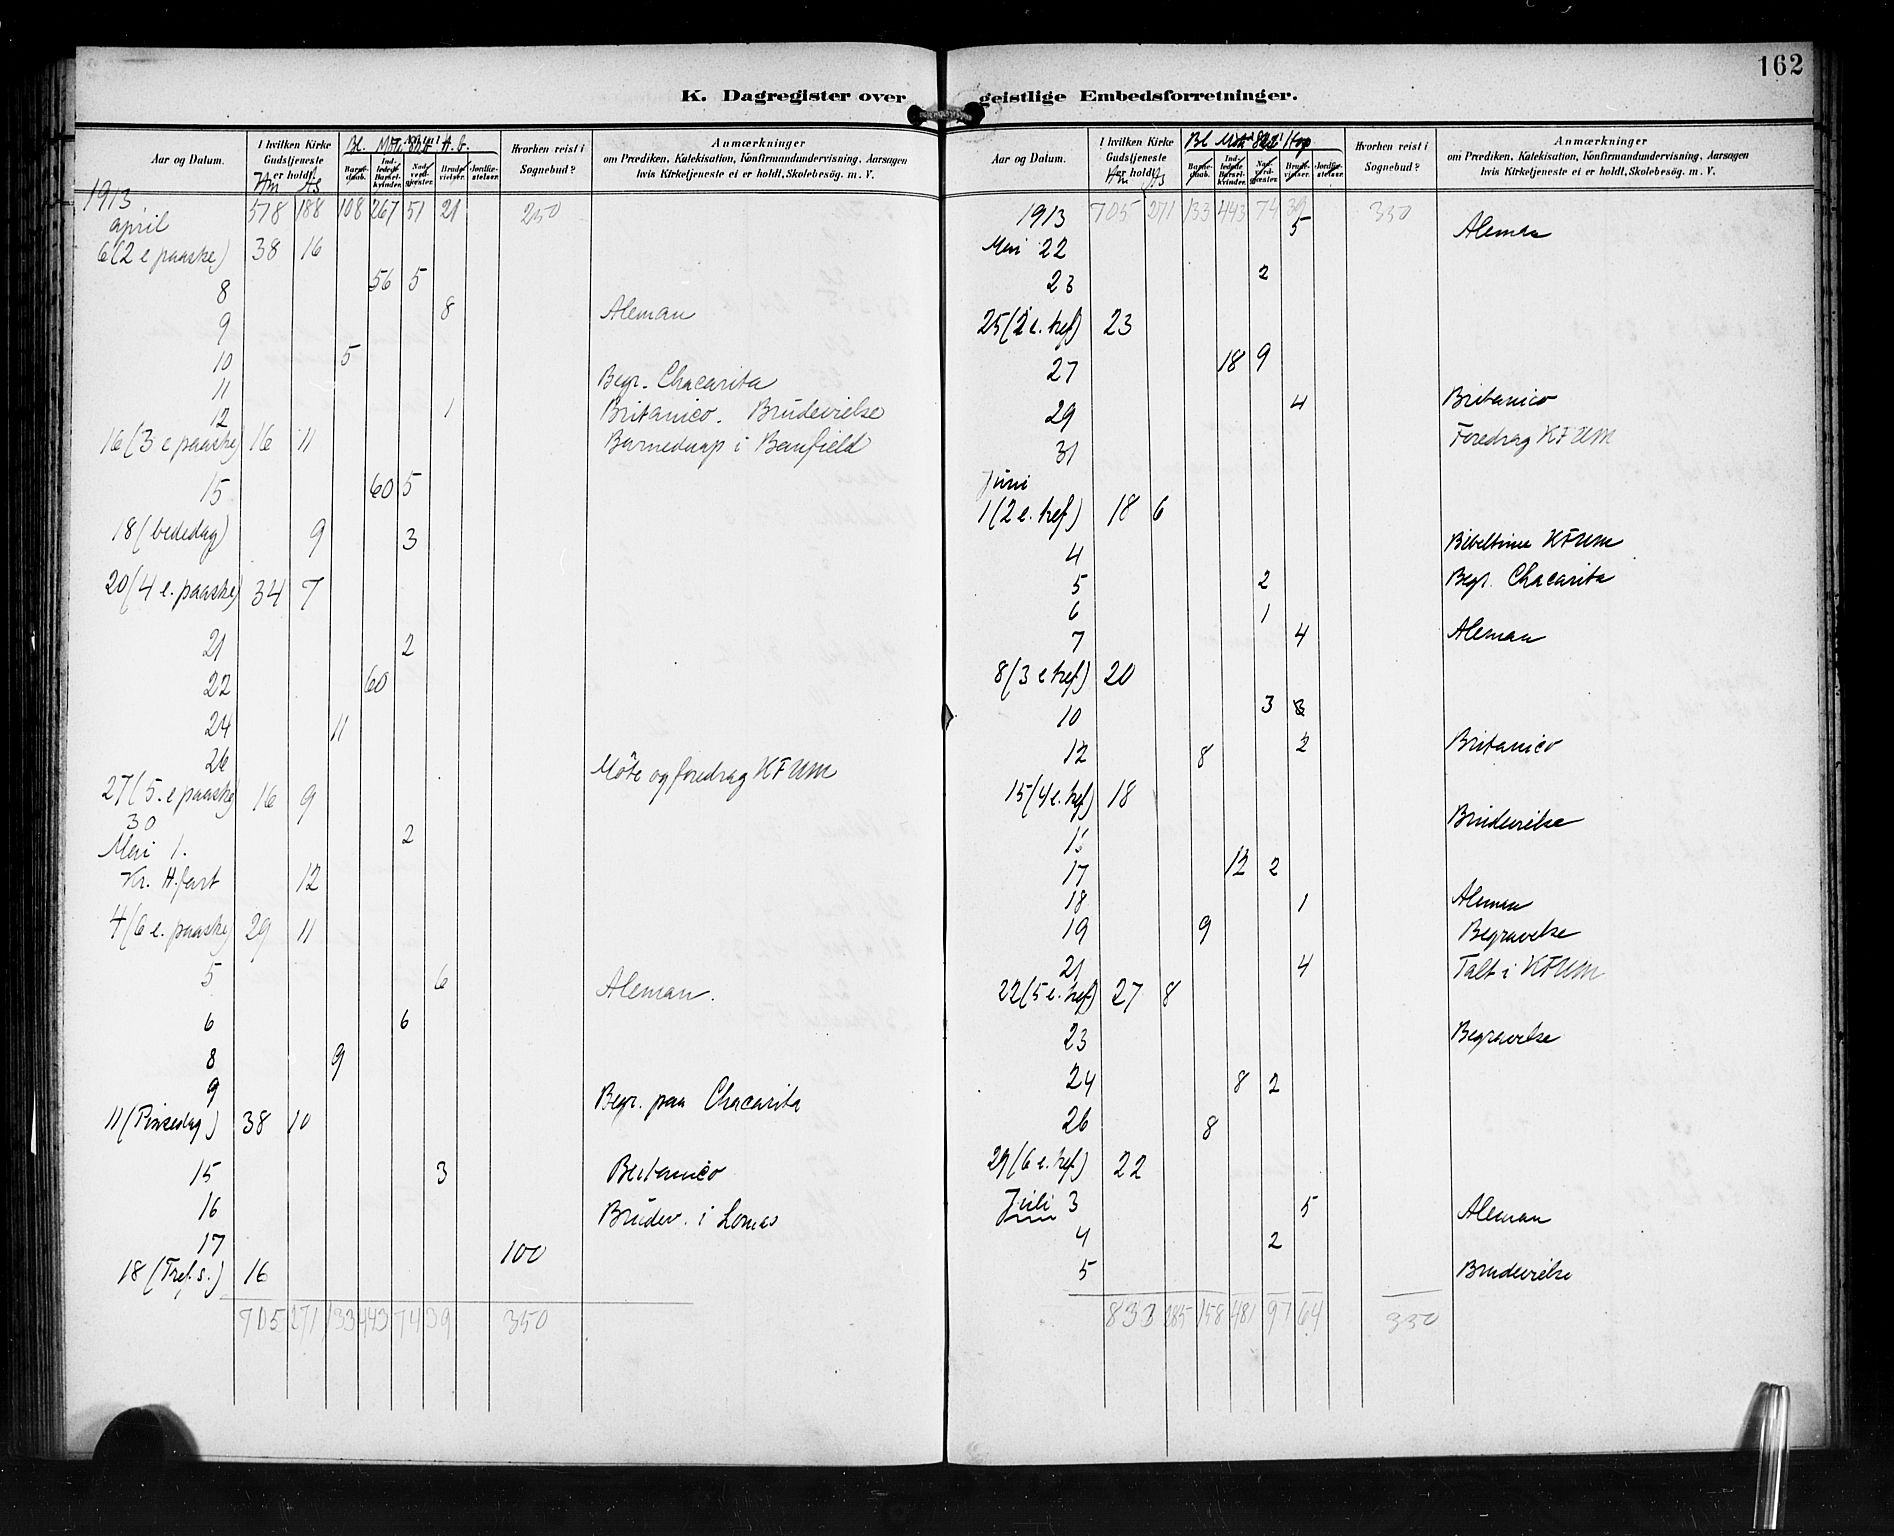 162
K. Dagregister over geistlige Embedsforretninger.
Aar og Datum.
I hvilken Kirke Gudstjeneste er holdt.
Hm As
Bl. A. b.
Barnedaab.
Indledede Barselkvinder.
Nadverdgjæster.
Brudevielser.
Jordfæstelser.
Hvorhen reist i Sognebud?
Anmærkninger
om Prædiken, Katekisation, Konfirmandundervisning, Aarsagen hvis Kirketjeneste ei er holdt, Skolebesøg. m. V.
1913 518 188 108 267 51 21 250
april
6 (2 e paaske) 38 16
8 56 5
9 8 Aleman
10 5
11 Begr. Chacarita
12 1 Britanico. Brudevielse
16 (3 e paaske) 16 11 Barnedaap i Banfield
15 60 5
18 (bededag) 9 3
20 (4 e. paaske) 34 7
21 2
22 60
24 11
26 Möte og foredrag KFUM
27 (5. e paaske) 16 9
30 2
Mai 1.
Kr. H.fart 12
4 (6 e. paaske) 29 11
5 6 Aleman.
6 6
8 9
9 Begr. paa Chacarita
11 (Pinsedag) 38 10
15 3 Britanico
16 Brudev. i Lomas
17 100
18 (Tref. s.) 16
705 271 133 443 74 39 350
Aar og Datum.
I hvilken Kirke Gudstjeneste er holdt.
Hm As
Bl
Barnedaab.
Indledede Barselkvinder.
Nadverdgjæster.
Brudevielser.
Jordfæstelser.
Hvorhen reist i Sognebud?
Anmærkninger
om Prædiken, Katekisation, Konfirmandundervisning, Aarsagen hvis Kirketjeneste ei er holdt, Skolebesøg. m. V.
1913 705 271 133 443 74 39 350
Mai 22 5 Aleman
23 2
25 (2 e. tref) 23
27 18 9
29 4 Britanico
31 Foredrag KFUM
Juni
1 (2 e. tref) 18 6
4 Bibeltime KFUM
5 2 Begr. Chacarita
6 1
7 4 Aleman
8 (3 e tref) 20
10 3 3
12 8 2 Britanico
15 (4 e. tref) 18
Brudevielse
17 12 2
18 1 Aleman
19 9 Begravelse
21 4 Talt i KFUM
22 (5 e. tref) 27 8
23 Begravelse
24 8 2
26 8
29 (6 e. tref) 22
Juli 3 5 Aleman
4 2
5 Brudevielse
833 285 158 481 97 64 350